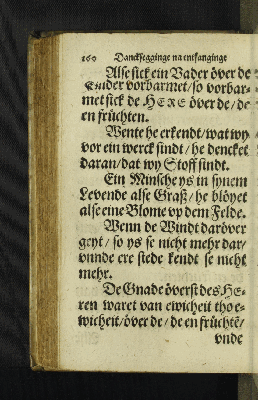 160 Dancksegginge na entfanginge
Alse sick ein Vader över de
Kinder vorbarmet/ so vorbar-
met sick de HERE över de/ de
en früchten.
Wente he erkendt/ wat wy
vor ein werck sindt/ he dencket
daran/ dat wy Stoff sindt.
Ein Minsche ys in synem
Levende alse Graß/ he blöyet
alse eine Blome vp dem Felde.
Wenn de Windt daröver
geyt/ so ys se nicht mehr dar/
vnnde ere stede kendt se nicht
mehr.
De Gnade överst des HE-
ren waret van ewicheit tho e-
wicheit/ över de/ de en früchtẽ/
vnde